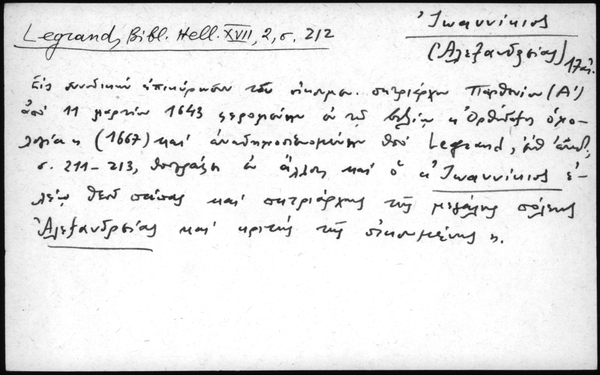 Legrand, Bibl. Hell. XVII, 2, σ. 212
Ἰωαννίκιος
(Ἀλεξανδρείας) 17 αἰ.
Εἰς συνοδικὴν ἐπικύρωσιν τοῦ οἰκουμεν. πατριάρχου Παρθενίου (Α')
ἀπὸ 11 μαρτίου 1643 ἐν τῷ βιβλίῳ «Ὀρθόδοξος ὁμο-
λογία» (1667) καὶ ἀναδημοσιευομένην ὑπὸ Legrand, ἔνθ' ἀνωτ.
σ. 211-213, ὑπογράφει ἐν ἄλλοις καὶ ὁ «Ἰωαννίκιος ἐ-
λέῳ Θεοῦ πάπας καὶ πατριάρχης τῆς μεγάλης πόλεως
Ἀλεξανδρείας καὶ κριτὴς τῆς οἰκουμένης».